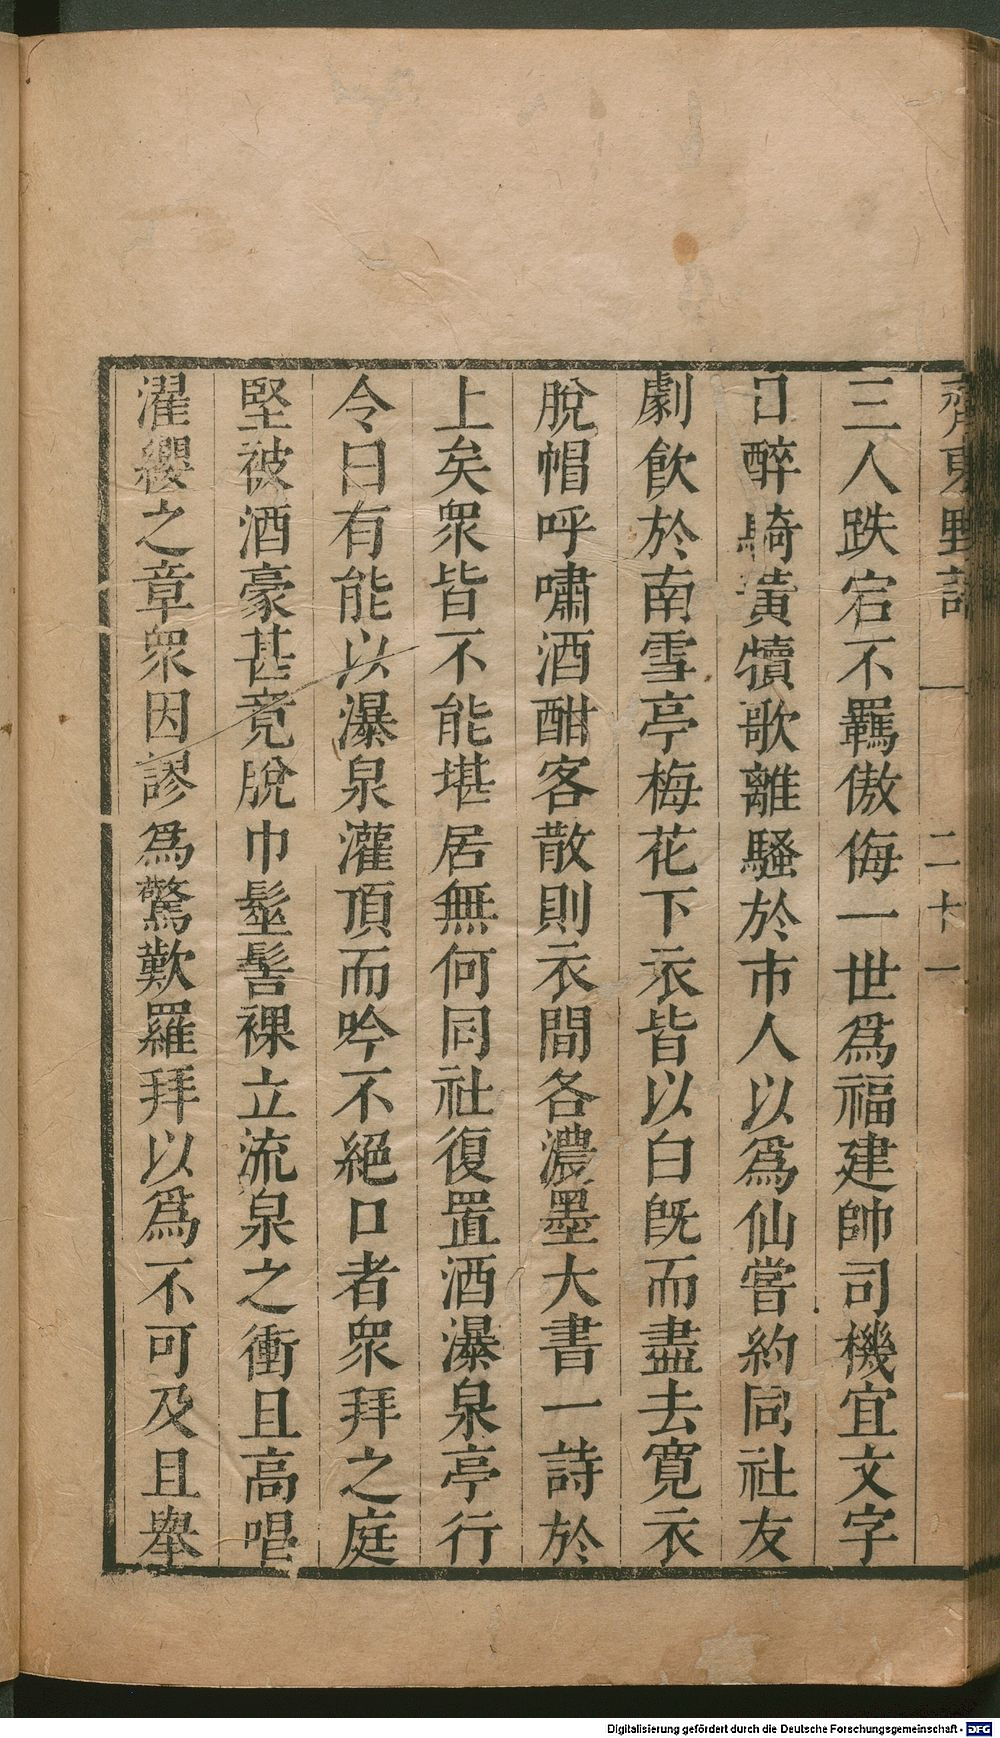 齊東野語 一 二十一
三人跌宕不羈傲侮一世爲福建帥司機宜文字
日醉騎黃犢歌離騷於市人以爲仙嘗約同社友
劇飲於南雪亭梅花下衣皆以白旣而盡去寬衣
脫帽呼嘯酒酣客散則衣間各濃墨大書一詩於
上矣衆皆不能堪居無何同社復置酒瀑泉亭行
令曰有能以瀑泉灌頂而吟不絕口者衆拜之庭
堅被酒豪甚竟脫巾髽髻裸立流泉之衝且高唱
濯纓之章衆因謬爲驚歎羅拜以爲不可及且舉
Digitalisierung gefördert durch die Deutsche Forschungsgemeinschaft - DFG